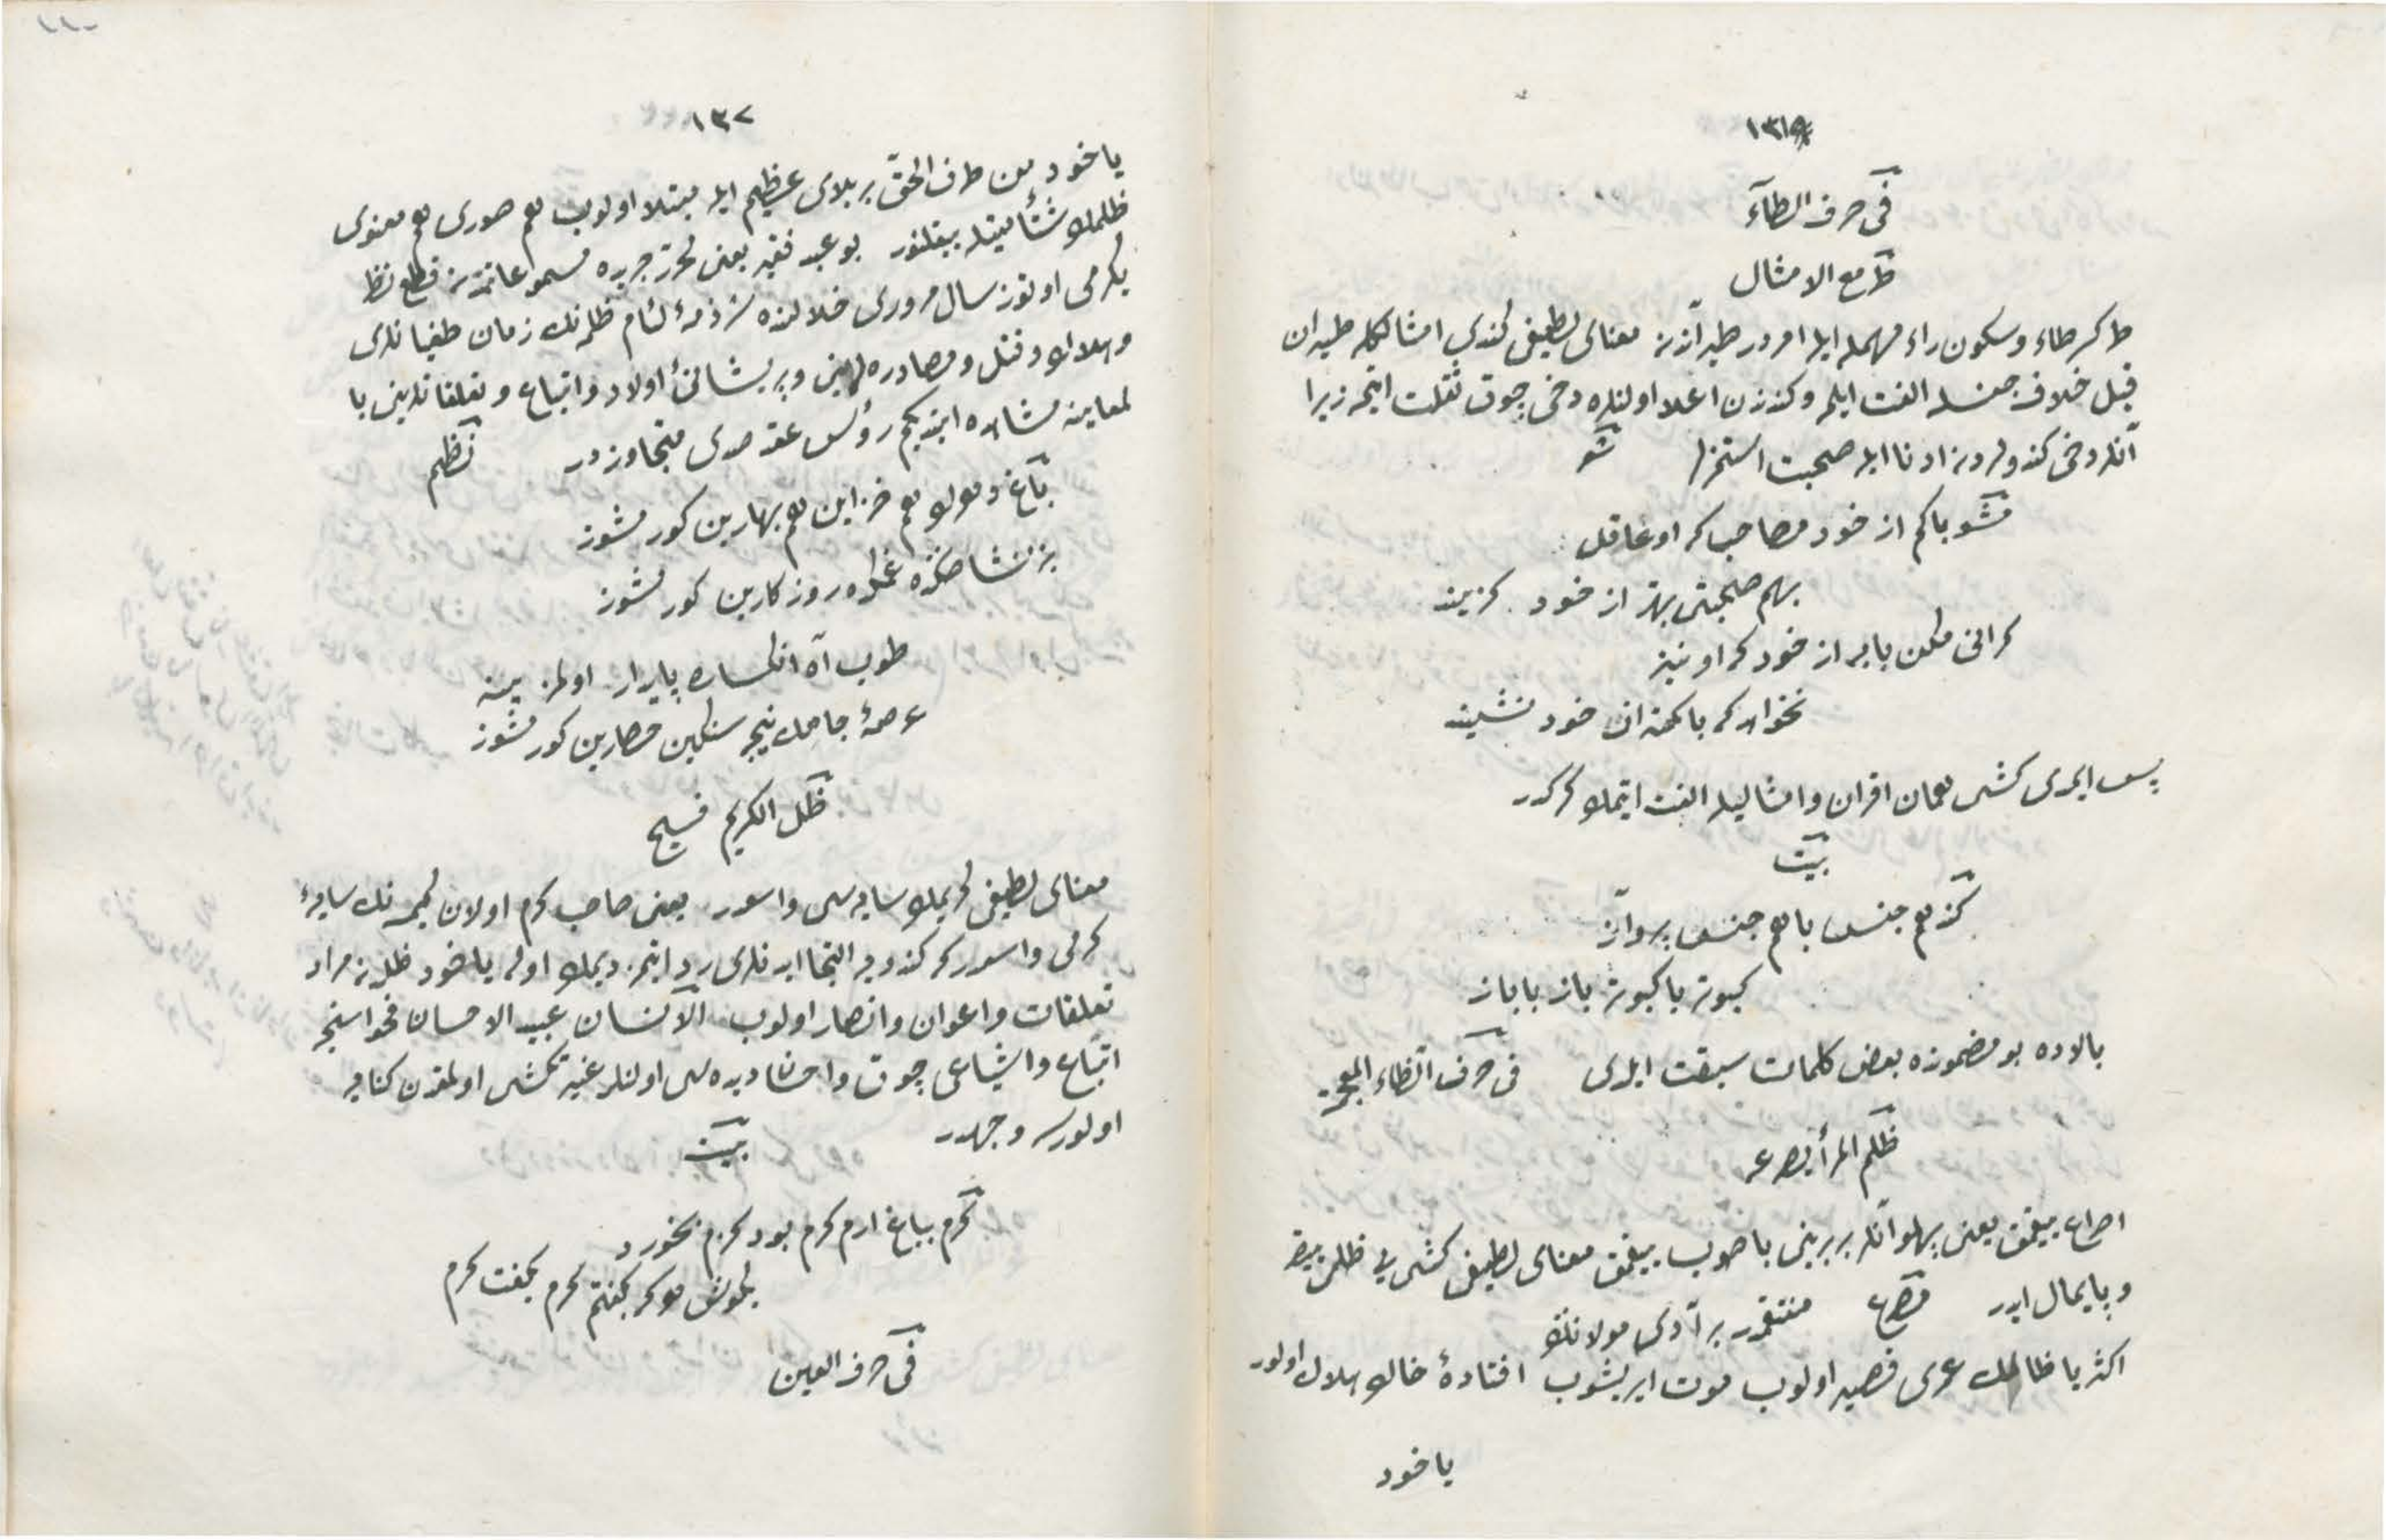 فى حرف الطآء
طر مع الامثال
طر كسر طاء وسكون راء مهمله ايله امردر طيراندن معناى لطيفى كندى امثالكله طيران
قيل خلاف جنسله الفت ايلمه وكندندن اعلا اولنلره دخى چوق ثقلت ايتمه زيرا
آنلر دخى كندولردن ادنا ايله صحبت استمزلر شعر
مشو باكم از خود مصاحب كه او عاقل
بهم صحبتى بهتر از خود گزيند
گرانى مكن با به از خود كه او نيز
نخواهد كه با كمتر از خود نشيند
پس ايمدى كشى همان اقران وامثاليله الفت ايتمك كركدر
بيت
كند هم جنس با هم جنس پرواز
كبوتر با كبوتر باز با باز
بالاده بو مضمونده بعض كلمات سبقت ايلدى فى حرف الظاء المعجمة
ظلم المرأ يصرعه
اصراع بيقمق يعنى پهلوانلر بربرينى باصوب بيقمق معناى لطيفى كشى يى ظلمى بيقر
وپايمال ايدر مصرع منتقمدر بر آدى مولانك
اكثريا ظالمك عمرى قصير اولوب موت ايريشوب افتادهٔ خاك هلاك اولور
ياخود
١٣٢
ياخود من طرف الحق بر بلاى عظيم ايله مبتلا اولوب هم صورى هم معنوى
ظلمك شئامتيله بيقلنور بو عبد فقير يعنى محرر جريده مسموعاتمزدن قطع نظر
يكرمى اوتوز سال مرورى خلالنده شرذمهٔ لئام ظلمه نك زمان طغيانلرى
وهلاك وقتل ومصادره لرينى وپريشانئ اولاد واتباع وتعلقاتلرينى با
لمعاينه مشاهده ايتديكم رؤس عقد صدى متجاوزدر نظم
باغ دهرك هم خزانين هم بهارين كورمشوز
بز نشاطكده غمكده روزكارين كورمشوز
طوپ آه انكساره پايدار اولمز يينه
عرصهٔ جاهك نيجه سنكين حصارين كورمشوز
ظل الكريم فسيح
معناى لطيفى كريمك سايه سى واسعدر يعنى صاحب كرم اولان كيمسه نك سايهٔ
كرمى واسعدر كه كندويه التجا ايدنلرى رد ايتمز ديمك اوله ياخود ظلدن مراد
تعلقات واعوان وانصار اولوب الانسان عبيد الاحسان فحواسنجه
اتباع واشياعى چوق واحسان ديده سى اولنلر غير تكش اولمقدن كنايه
اولورسه وجهدر بيت
كرم بباغ ارم كرم بود كرم نخورد
بگوش هوكه بگفتم كرم بگفت كرم
فى حرف العين